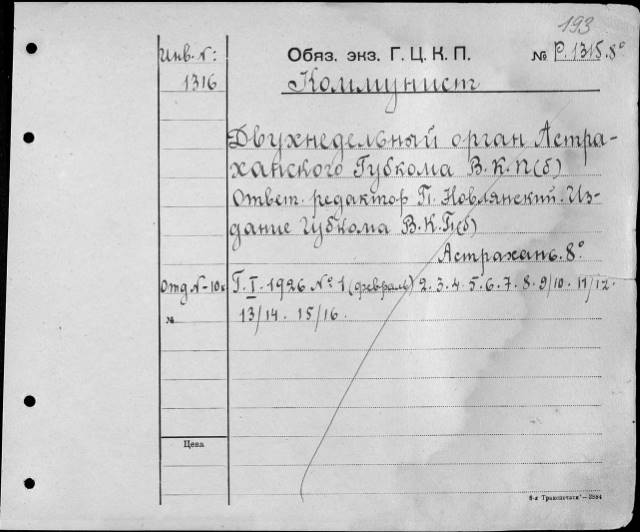 193
Инв. №:
Обяз. экз. Г. Ц. К. П.
№ Р.1315.8°
1316
Коммунист
Двухнедельный орган Астра-
ханского Губкома В.К.П(б)
Ответ. редактор П. Новлянский. Из-
дание Губкома В.К.П(б)
Астрахань. 8°
Отд. № 10к
Г. I. 1926 № 1 (февраль) 2. 3. 4. 5. 6. 7. 8. 9/10. 11/12.
№
13/14. 15/16.
Цена
6-я Транспечати — 3884